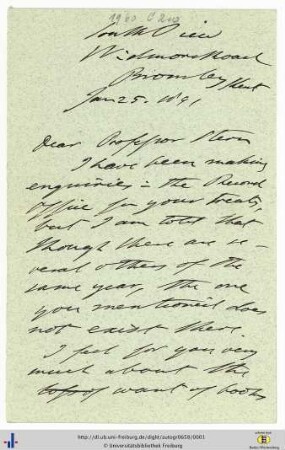 South View
Widmore Road
Bromley
Kent
Jan 25. 1891
Dear Professor Stern
I have been making
enquiries in the Record
Office for your treaty,
but I am told that
though there are se-
veral others of the
same year, the one
you mentioned does
not exist there.
I feel for you very
much about the
want of books
http://dl.ub.uni-freiburg.de/diglit/autogr0659/0001
© Universitätsbibliothek Freiburg